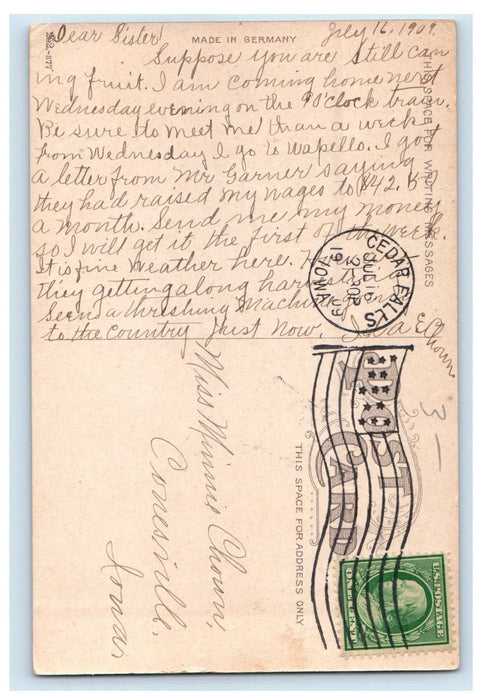 MADE IN GERMANY
July 16, 1909.
Dear Sister!
Suppose you are still can
ing fruit. I am coming home next
Wednesday evening on the 9 O'clock train.
Be sure to meet me than a week
from Wednesday I go to Wapello. I got
a letter from Mr Garner saying
they had raised my wages to $42.50
a month. Send me my money
so I will get it the first of the week.
It is fine weather here.
they getting along harvesting
Seen a threshing machine
to the country Just Now,
THIS SPACE FOR WRITING MESSAGES
CEDAR FALLS
JUL 16
2-30P
1909
IOWA
POST CARD
THIS SPACE FOR ADDRESS ONLY
Miss Minnie Chown,
Conesville,
Iowa
3-
U.S. POSTAGE
ONE CENT